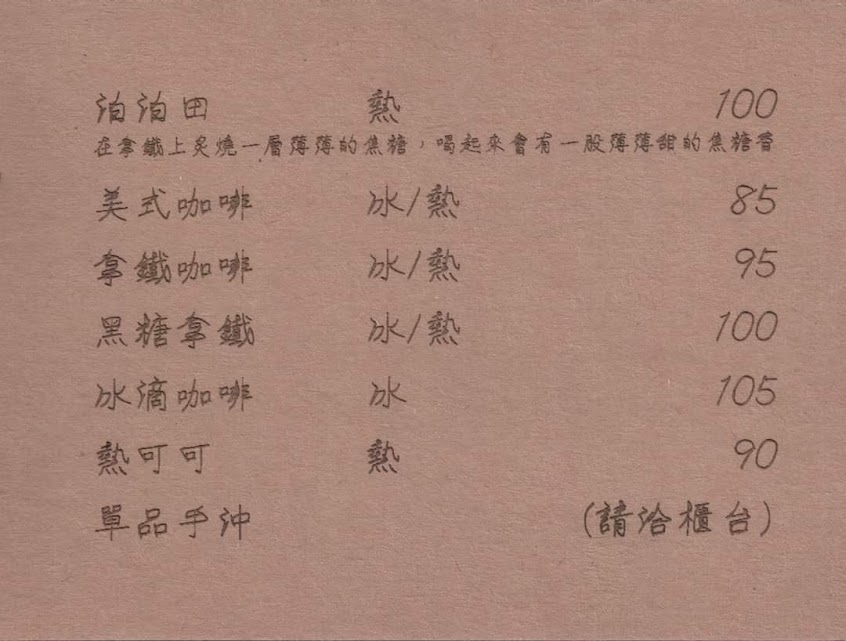 泊泊田 熱 100
在拿鐵上炙燒一層薄薄的焦糖，喝起來會有一股薄薄甜的焦糖香
美式咖啡 冰/熱 85
拿鐵咖啡 冰/熱 95
黑糖拿鐵 冰/熱 100
冰滴咖啡 冰 105
熱可可 熱 90
單品手沖 (請洽櫃台)